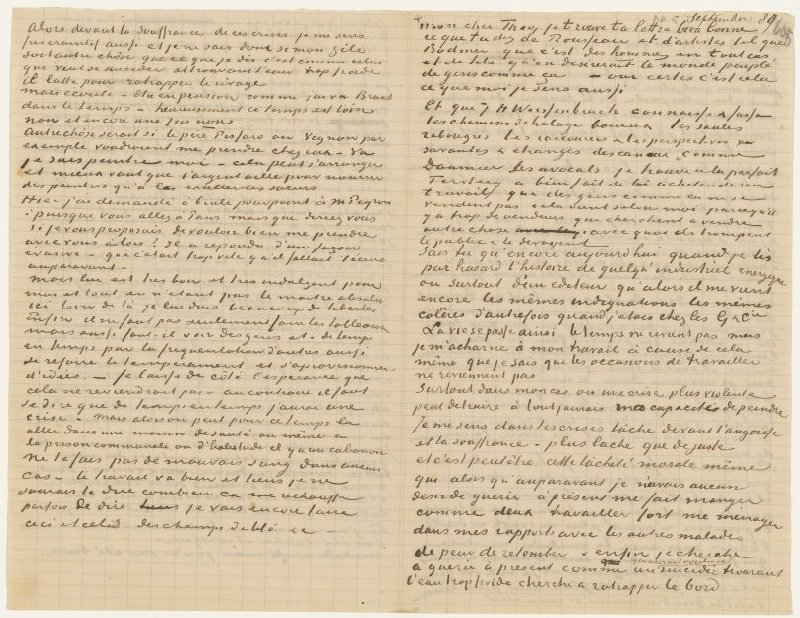 Alors devant la souffrance de ces crises je me sens
bien craintif aussi et je ne sais donc si mon zèle
soit autre chose que ce que je dis c'est comme celui
que veut se suicider et trouvant l'eau trop froide
il lutte pour ratrapper le rivage
mais ecoute – être en pension comme j'ai vu Braat
dans le temps – heureusement ce temps est loin
non et encore une fois non
Autre chose serait si le père Pissaro ou Vignon par
exemple voudraient me prendre chez eux – va
je suis peintre moi – cela peut s'arranger
et mieux vaut que l'argent aille pour nourrir
des peintres qu'à les excellentes sœurs
Hier j'ai demandé à brule pourpoint à M Peyron
: puisque vous allez à Paris mais que diriez vous
si je vous proposais de vouloir bien me prendre
avec vous alors? Il a repondu d'une façon
evasive – que c'etait trop vite qu'il fallait t'ecrire
auparavant –
Mais lui est très bon et tres indulgent pour
moi et tout en n'etant pas le maitre absolu
ici loin de là je lui dois beaucoup de libertés
Enfin il ne faut pas seulement faire les tableaux
mais aussi faut-il voir des gens et – de temps
en temps par la frequentation d'autres aussi
se refaire le temperament et s'approvisionner
d'idées – Je laisse de côté l'esperance que
cela ne reviendrait pas – au contraire il faut
se dire que de temps en temps j'aurai une
crise – Mais alors on peut pour ce temps là
aller dans une maison de santé ou même à
la prison communale où d'habitude il y a un cabanon
Ne te fais pas de mauvais sang dans aucun
cas – le travail va bien et tiens je ne
saurais te dire combien ca me rechauffe
parfois de dire je vais encore faire
ceci et cela des champs de blé &c –
20 – September 89 605
mon cher Theo, je trouve ta lettre bien bonne
ce que tu dis de Rousseau et d'artistes tel que
Bodmer que c'est des hommes en tout cas
et de tels qu'on desirerait le monde peuplé
de gens comme ca – oui certes c'est cela
ce que moi je sens aussi
Et que J H Weissenbruch connaisse & fasse
les chemins de halage boueux les saules
rabougris les raccourcis & les perspectives
savantes & etranges des canaux comme
Daumier les avocats je trouve cela parfait
Tersteeg a bien fait de lui acheter de son
travail que des gens comme ca ne se
vendent pas cela vient selon moi parcequ'il
y a trop de vendeurs qui cherchent a vendre
autre chose avec quoi ils trompent
le public & le devoyent
Sais tu qu'encore aujourd'hui quand je lis
par hasard l'histoire de quelqu' industriel energique
ou surtout d'un editeur qu'alors il me vient
encore les mêmes indignations les mêmes
colères d'autrefois quand j'etais chez les G & Cie
La vie se passe ainsi le temps ne revient pas mais
je m'acharne à mon travail à cause de cela
même que je sais que les occasions de travailler
ne reviennent pas
Surtout dans mon cas où une crise plus violente
peut detruire à tout jamais ma capacité de peindre
je me sens dans les crises lâche devant l'angoisse
et la souffrance – plus lâche que de juste
et c'est peutêtre cette lâcheté morale même
qui alors qu'auparavant je n'avais aucun
desir de guerir à présent me fait manger
comme deux travailler fort me menager
dans mes rapports avec les autres malades
de peur de retomber – enfin je cherche
a guerir à présent comme un qui aurait voulu se suicider trouvant
l'eau trop froide cherche a ratrapper le bord